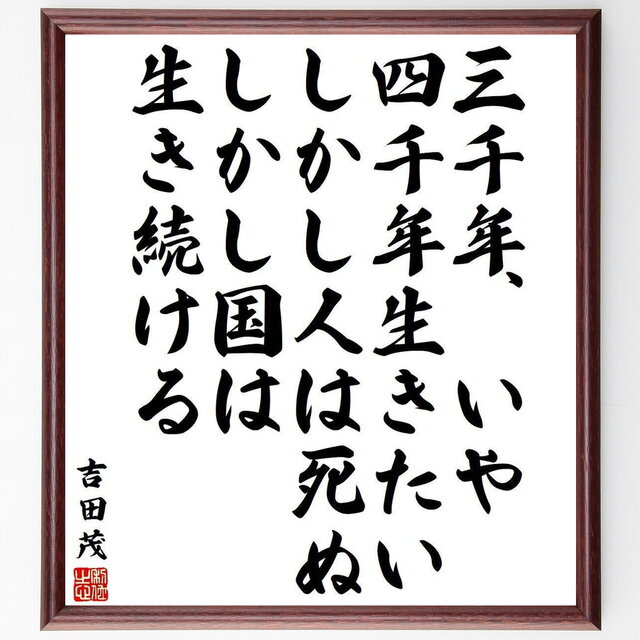 三千年、 いや
四千年生きたい
しかし人は死ぬ
しかし国は
生き続ける
吉田茂